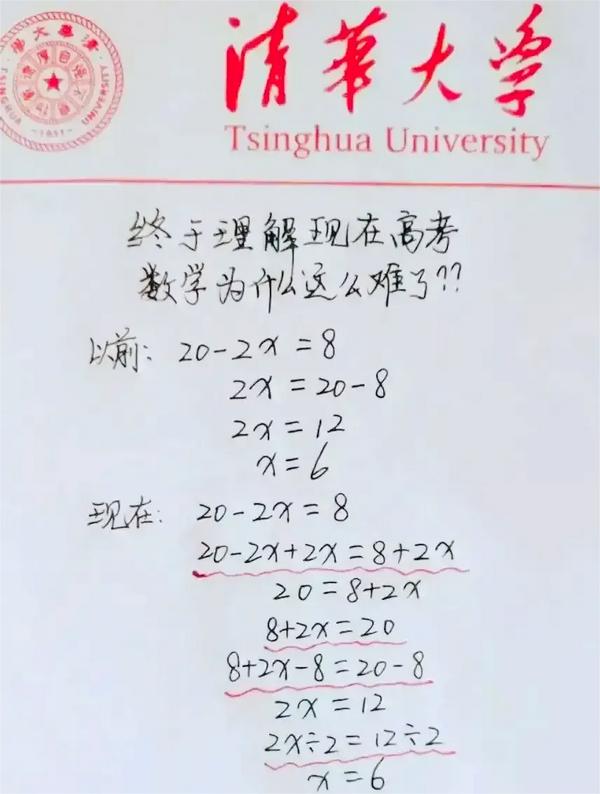 清華大学
Tsinghua University
TSINGHUA UNIVERSITY
-1911-
终于理解现在高考
数学为什么这么难了??
以前: 20-2x=8
2x=20-8
2x=12
x=6
现在: 20-2x=8
20-2x+2x=8+2x
20=8+2x
8+2x=20
8+2x-8=20-8
2x=12
2x÷2=12÷2
x=6